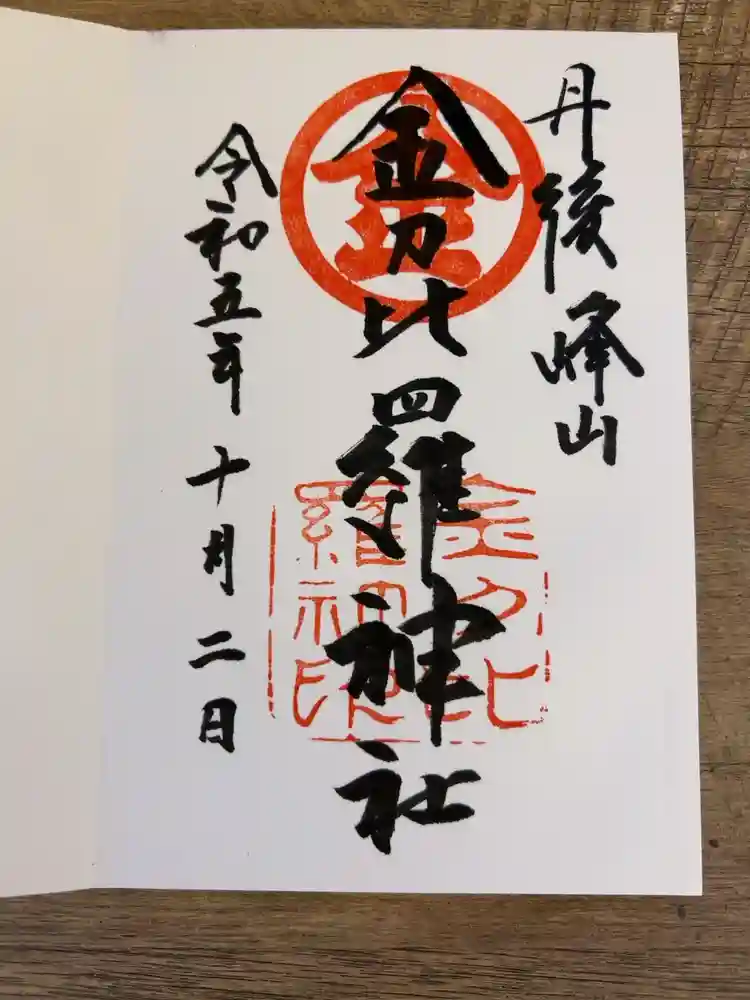 丹後峰山
金刀比羅神社
金
金刀比
羅神
印
令和五年十月二日